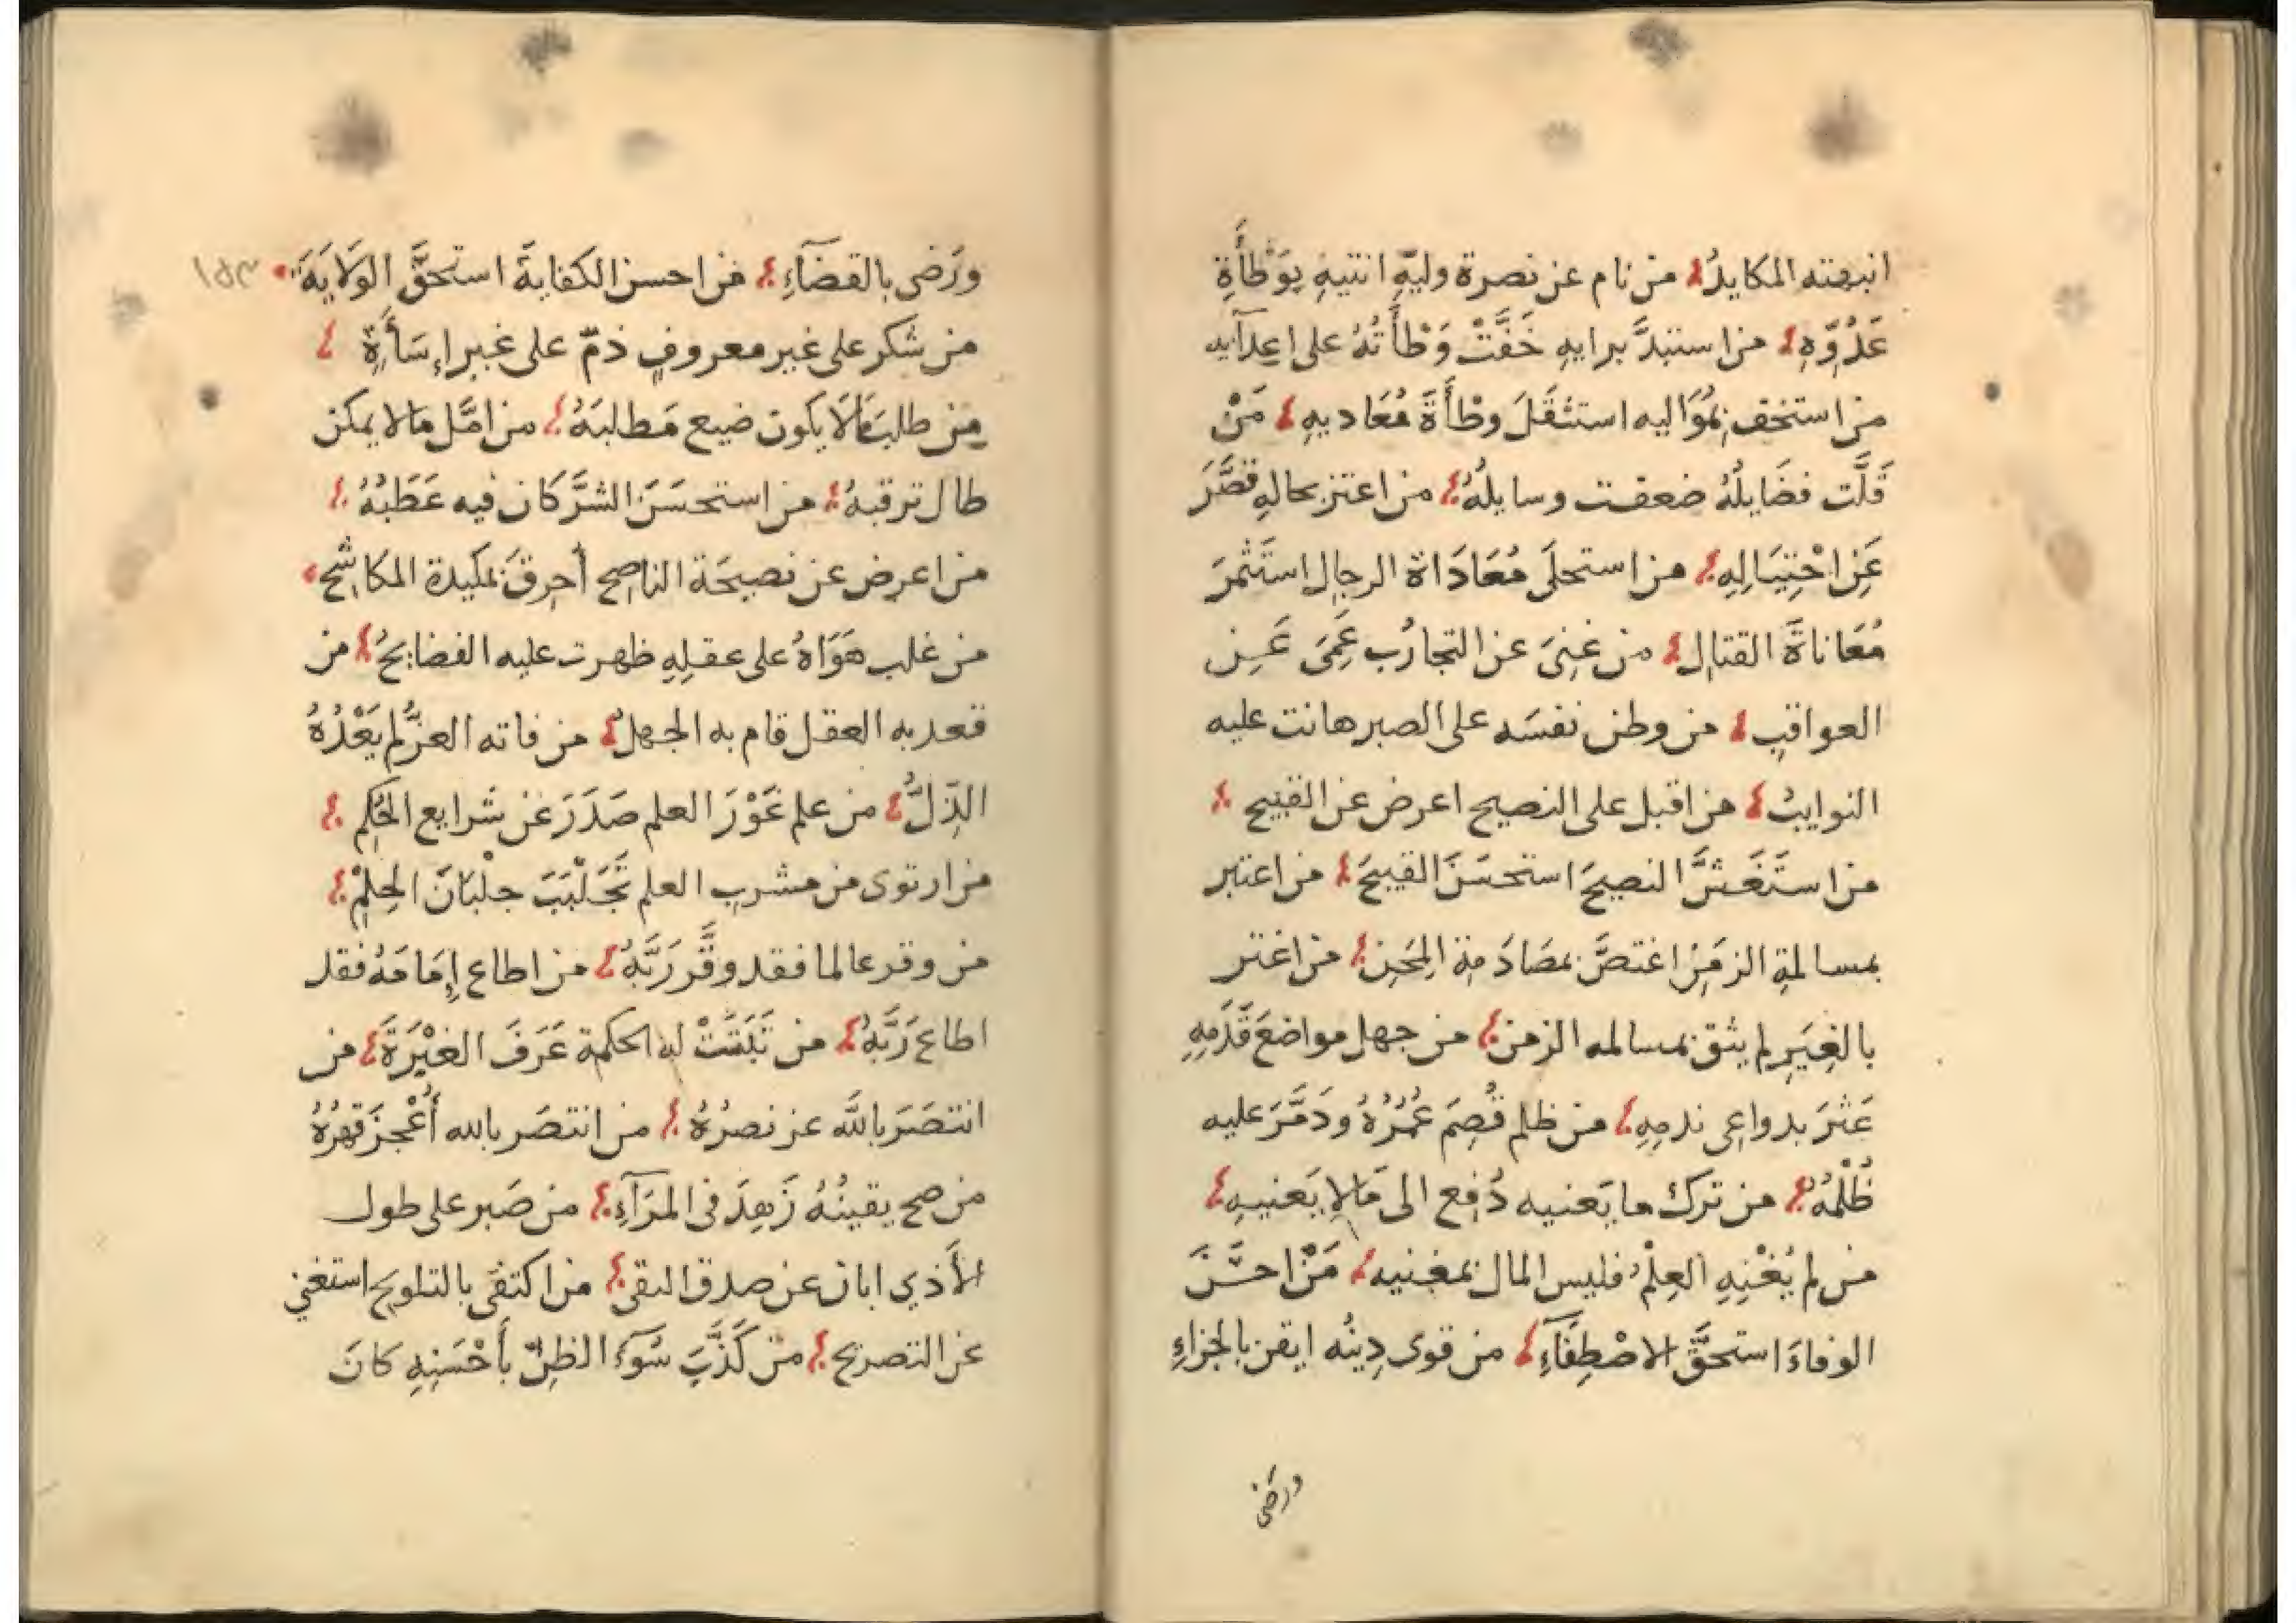 انبهته المكايدُ من نام عن نصرة وليهِّ انتبهِ بِوَطْأَةِ
عَدُوِّهِ من استبدَّ برايهِ خَفَّتْ وَطْأَتُهُ على اعدآيه
من استخف بِمُوَاليه استثقَلَ وطْأَةَ مُعَاديهِ مَنْ
قَلَّت فضَايلُهُ ضعفت وسايلُهُ من اعتز بحالهِ قصَّرَ
عَنِ احْتِيَالِهِ من استحلَى مُعَادَاة الرجالِ استَثْمرَ
مُعَاناةَ القتالِ من غنِىَ عن التجارُب عَمِىَ عَنِ
العواقبِ من وطن نفسَه على الصبر هانت عليه
النوايبُ من اقبل على النصيح اعرض عن القبيح
من استَغَشَّ النصيحَ استحسَنَ القبيحَ من اعتبر
بمسالمةِ الزمَنِ اغتصَّ بمصَادَمةِ المِحَنِ من اغتر
بالغِيَرِ لم يثق بمسالمه الزمن من جهل مواضعَ قَدَمِهِ
عَثرَ بدواعِى ندمِهِ من ظلم قُصِمَ عُمُرُهُ ودَمَّرَ عليه
ظُلْمُهُ من ترك ما يَعنيه دُفِع الى مَا لا يَعنيهِ
من لم يُغْنِهِ العِلْمُ فليس المال بمغنيه مَنْ احسَنَ
الوفاءَ استحقَّ الاصْطِفَآءِ من قوى دِينُه ايقن بالجزاءِ
ورَضى
ورَضى بالقضآءِ من احسن الكفايةَ استحقَّ الولَايَةَ ١٥٣
من شكر على غير معروفٍ ذمّ على غير إِسَأَةٍ
من طلبَ مَالَا يكون ضيع مَطلبَهُ من امَّل مالا يمكن
طال ترقبهُ من استحسَنَ الشرَّ كان فيه عَطَبُهُ
من اعرض عن نصيحَة الناصِح أُحرِقَ بمَكيدة المكاشح
من غلب هَوَاهُ على عقلِهِ ظهرت عليه الفضايحُ من
قعد به العقل قام به الجهلُ من فاته العزُّ لم يَعْدُهُ
الذِّلُّ من علم غَوْرَ العلم صَدَرَ عن شَرايع الحُكمِ
من ارتوى من مشرب العلم تَجَلْبَبَ جلْبَابَ الحِلمْ
من وقر عالما فقد وقَّر رَبَّهُ من اطاع إِمَامَهُ فقد
اطاع رَبَّهُ من تَبَيَّنَتْ له الحكمة عَرَفَ العْبْرَةَ من
انتصَرَ بالله عز نصرُهُ من انتصَر بالله أَعْجز قهرُهُ
من صح يقينُهُ زَهِدَ فى المرَآءِ من صَبر على طول
الأذي ابان عن صدق التقى من اكتفى بالتلويح استغني
عن التصريح من كَذَّبَ سُوَٓءَ الظنِّ بأَحْسَنِهِ كانَ